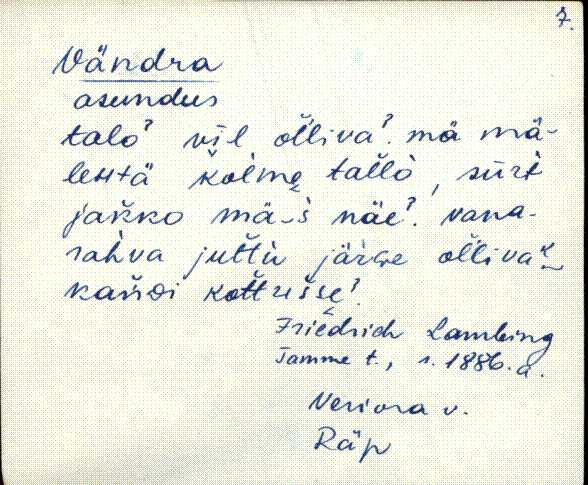 7.
Vändra
asundus
taloˀ vil olliva?. mä mä-
lehtä kolme tallo, suri
jakko mä-s näeˀ. vana-
rahva juttu järge olliva
kańdi kottusseˀ.
Friedrich Lambing
Tamme t., s. 1886. a.
Veriora v.
Räp